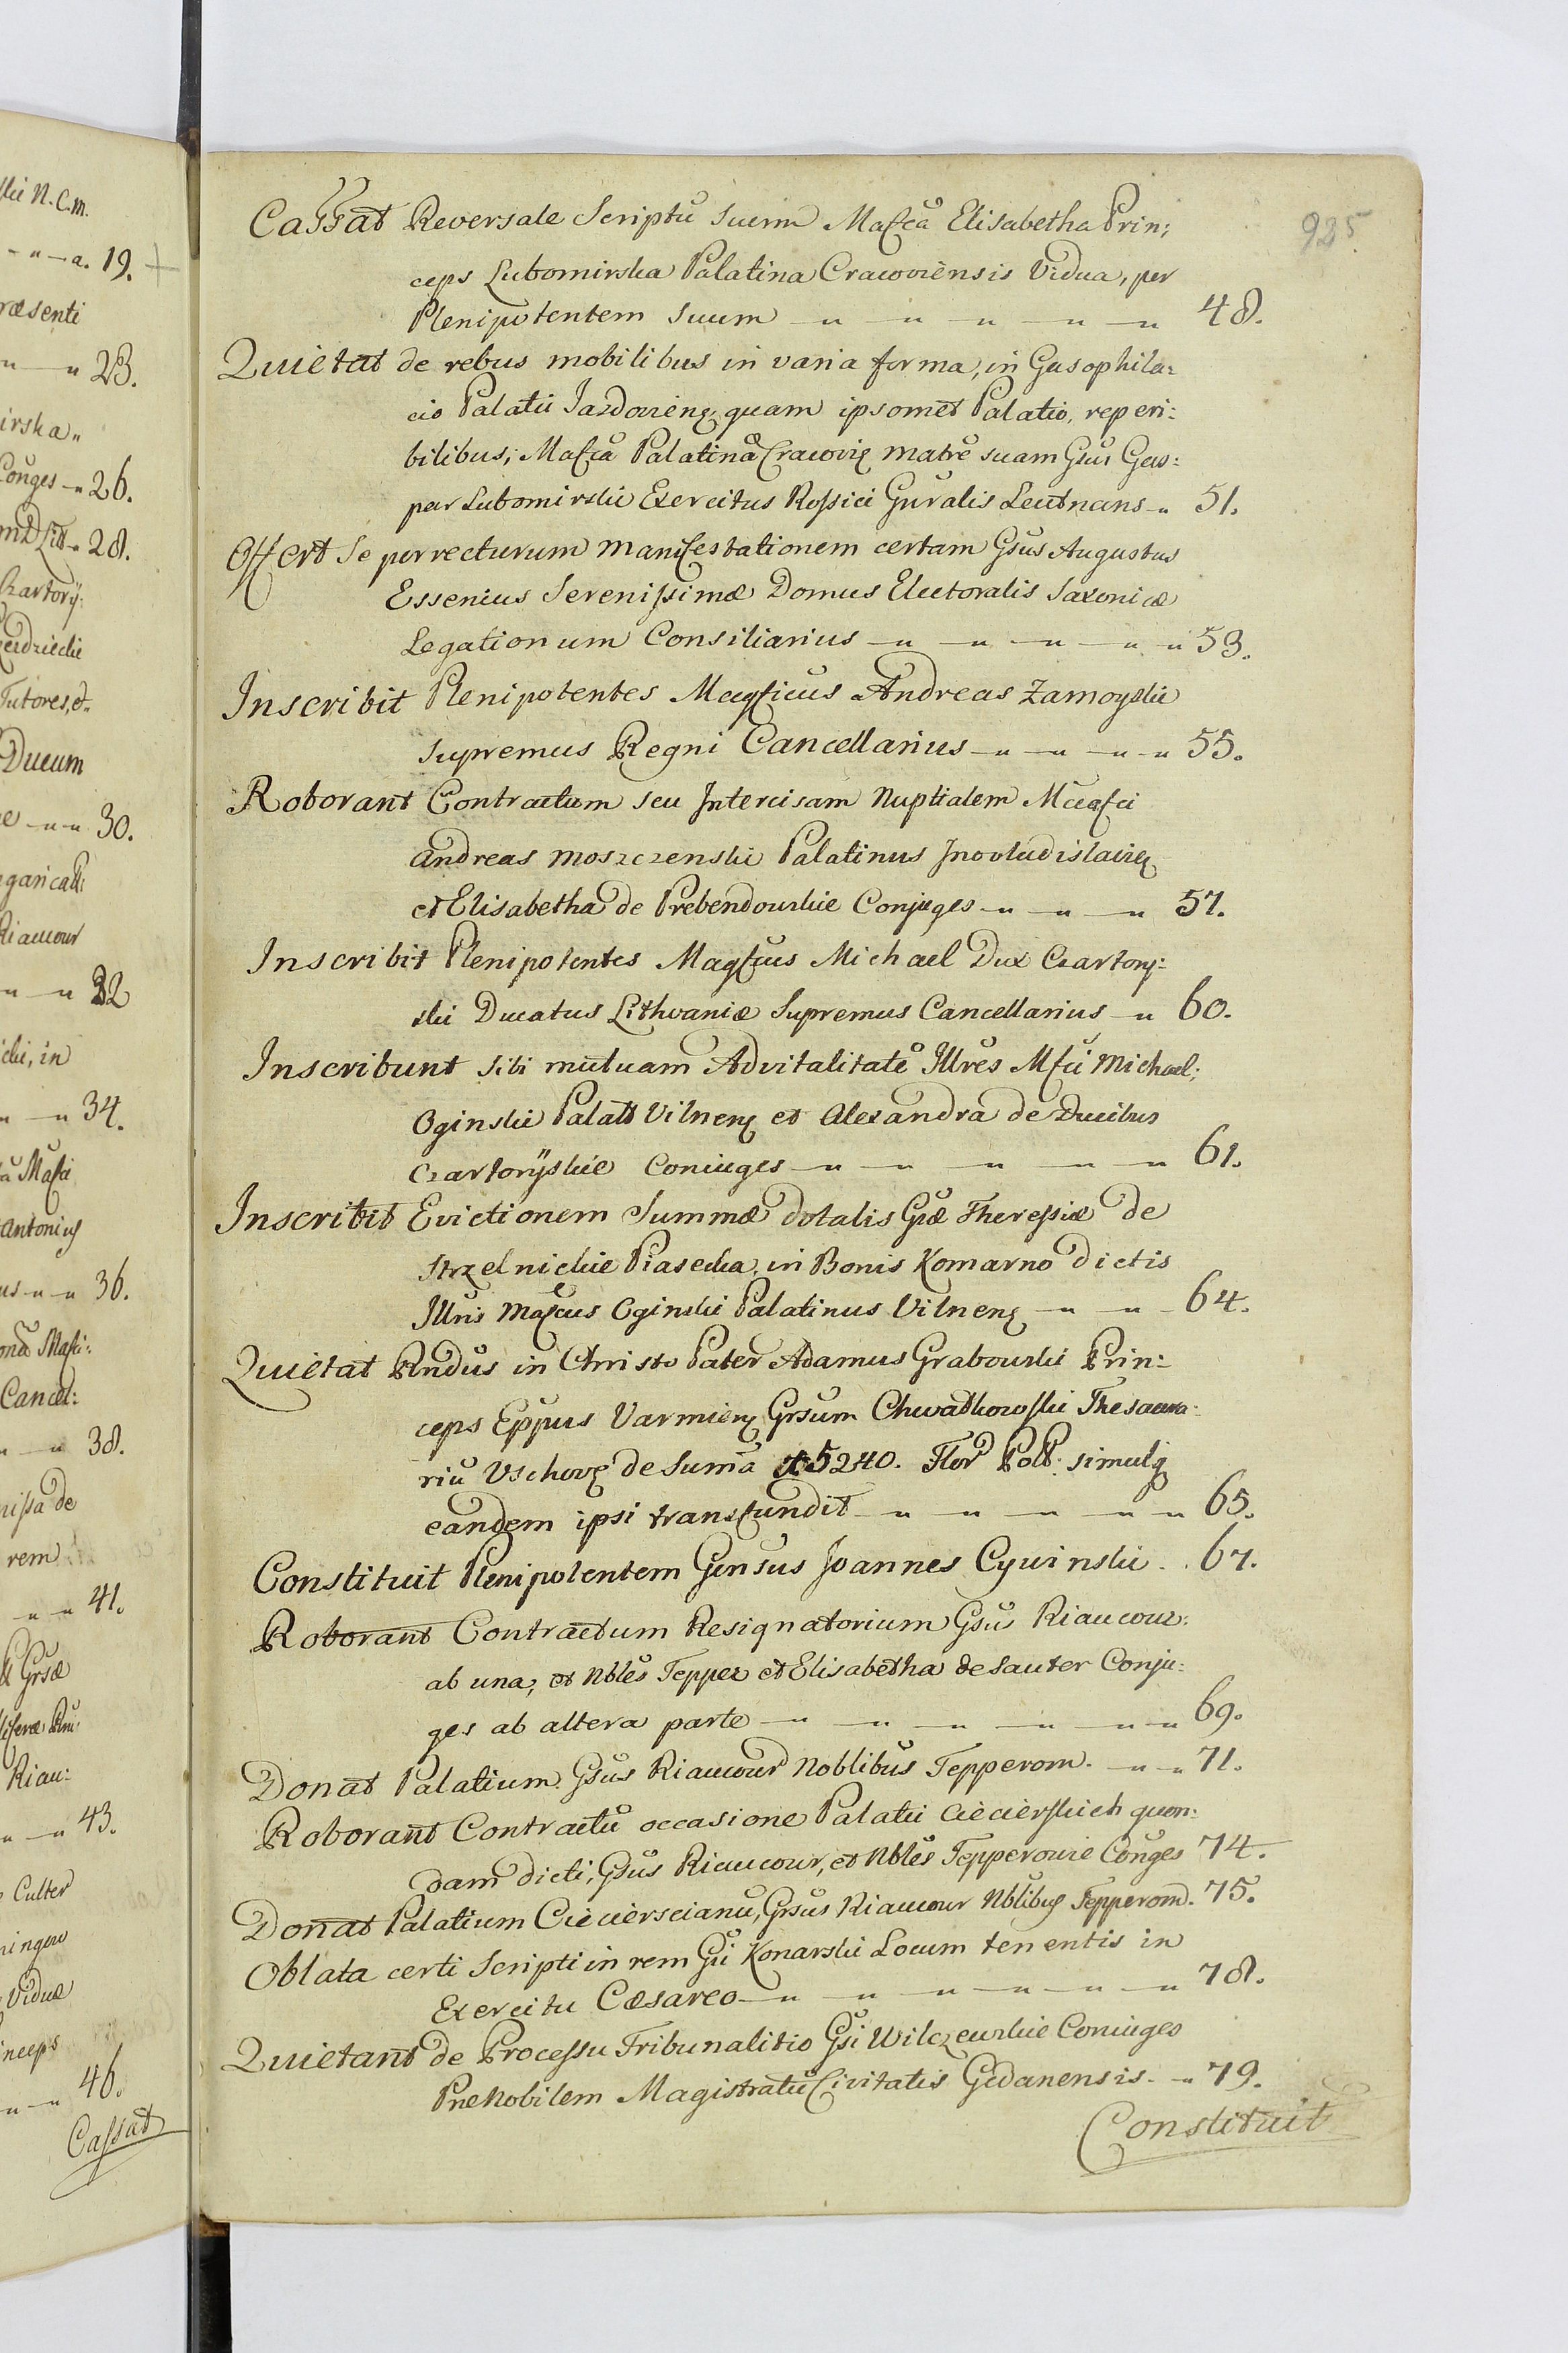 lii N. C. m.
a. 19.
ræsenti
23.
irska
Conges 26.
28.
Czartory:
Tutores, et
Ducum
30.
Riaucour
32
in
34.
Antonius
36.
Cancel:
38.
nissa de
rem
41.
Grsæ
Riau:
43.
Culter
Viduæ
inceps
46.
Cassat
925.
Cassat Reversale Scriptũ Suum Mafcã Elisabetha Prin:
ceps Lubomirska Palatina Cracoviensis Vidua, per
Plenipotentem Suum 48.
Quietat de rebus mobilibus in varia forma, in Gasophila:
cio Palatii Jazdovienȩ quam ipsomet Palatio, reperi:
bilibus, Mafca Palatinã Cracoviȩ matrẽ suam Gsus Gas:
par Lubomirski Exercitus Rossici Gnralis Leutnans 51.
Offert Se porrecturum manifestationem certam Gsus Augustus
Essenius Serenissimæ Domus Electoralis Saxonicæ
Legationum Consiliarius 53.
Inscribit Plenipotentes Magficus Andreas Zamoyski
Supremus Regni Cancellarius 55.
Roborant Contractum seu Intercisam Nuptialem Mafci
Andreas Moszczenski Palatinus Inovladislavieȩ
et Elisabetha de Prebendowskie Conjuges 57.
Inscribit Plenipotentes Magfcus Michael Dux Czartory:
ski Ducatus Lithvaniæ Supremus Cancellarius 60.
Inscribunt sibi mutuam Advitalitatẽ Illres Mfci Michael:
Oginski Palatt Vilnenȩ et Alexandra de Ducibus
Czartoryskie Coniuges 61.
Inscribit Evictionem Summæ dotalis Gsæ Theressiæ de
Strzelnickie Piasecka, in Bonis Komarno dictis
Illris Mafcus Oginski Palatinus Vilnenȩ 64.
Quietat Rndus in Christo Pater Adamus Grabowski Prin:
ceps Eppus Varmienȩ Grsum Chwatkowski Thesaura:
riũ Vschovȩ de Sumã 5240. Flor Poll: simulq
eandem ipsi transfundit 65.
Constituit Plenipotentem Gensus Joannes Cywinski 67.
Roborant Contractum Resignatorium Gsus Riaucour:
ab una, et Nbles Tepper et Elisabetha de Sauter Conju:
ges ab altera parte 69.
Donat Palatium Gsus Riaucour Noblibus Tepperom. 71.
Roborant Contractũ occasione Palatii Ciecierskich quon:
dam dicti, Gsus Riaucour, et Nbles Tepperowie Conges 74.
Donat Palatium Ciecierscianũ, Grsus Riaucour Nblibus Tepperom. 75.
Oblata certi Scripti in rem Gsi Konarski Locum tenentis in
Exercitu Cæsareo 78.
Quietant de Processu Tribunalitio Gsi Wilczewskie Coniuges
Prænobilem Magistratũ Civitatis Gedanensis. 79.
Constituit